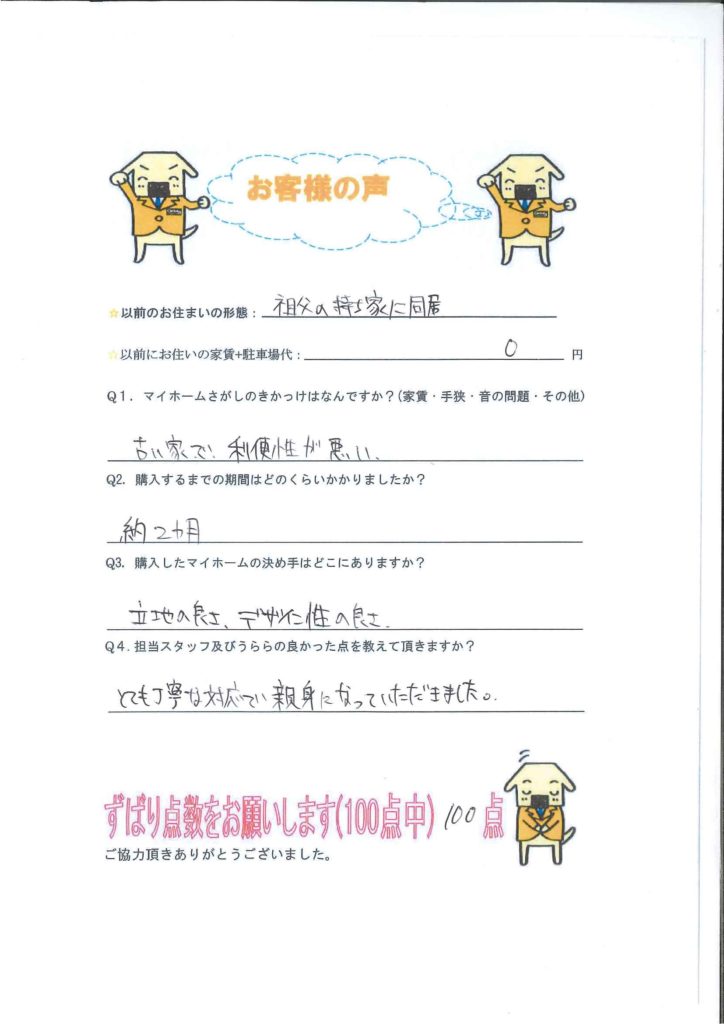 お客様の声
☆以前のお住まいの形態：祖父の持ち家に同居
☆以前にお住いの家賃+駐車場代：0 円
Q1. マイホームさがしのきかっけはなんですか？(家賃・手狭・音の問題・その他)
古い家で、利便性が悪い、
Q2. 購入するまでの期間はどのくらいかかりましたか？
約2カ月
Q3. 購入したマイホームの決め手はどこにありますか？
立地の良さ、デザイン性の良さ、
Q4. 担当スタッフ及びうららの良かった点を教えて頂きますか？
とても丁寧な対応でい親身になっていただきました。
ずばり点数をお願いします(100点中) 100 点
ご協力頂きありがとうございました。